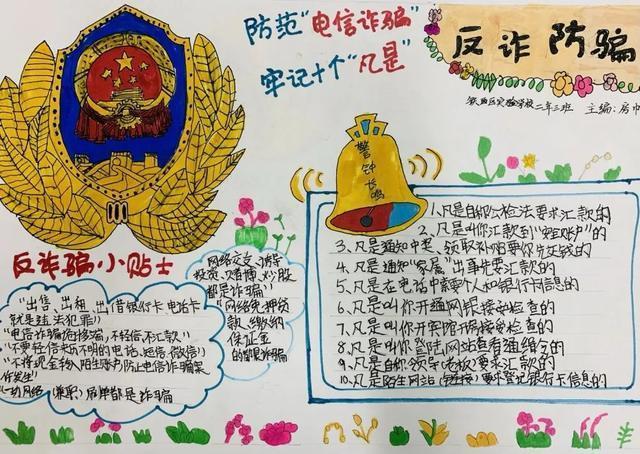 防范"电信诈骗"
牢记十个"凡是"
反诈防骗
二年三班 主编:房
警钟长鸣
反诈骗小贴士
"出售、出租、出借银行卡、电话卡
就是违法犯罪"
"不要轻信来历不明的电话、短信、微信"
网络交友诱导
投资、赌博、炒股
都是诈骗"
"网络免押贷
款、缴纳
保证金
的都是诈骗
1、凡是自称公检法要求汇款的
2、凡是叫你汇款到"安全账户"的
3、凡是通知中奖、领取补贴要你先交钱的
4、凡是通知"家属"出事先要汇款的
5、凡是在电话中索要个人和银行卡信息的
6、凡是叫你开通网银接受检查的
7、凡是叫你开宾馆开房接受检查的
8、凡是叫你登陆网站查看通缉令的
9、凡是自称领导老板要求汇款的
10、凡是陌生网站(链接)要求登记银行卡信息的